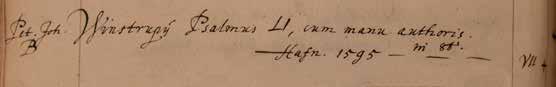 Pet. Joh. Winstrupÿ Psalmus LI, cum manu authoris.
B — Hafn. 1595 — in 8º. — VII